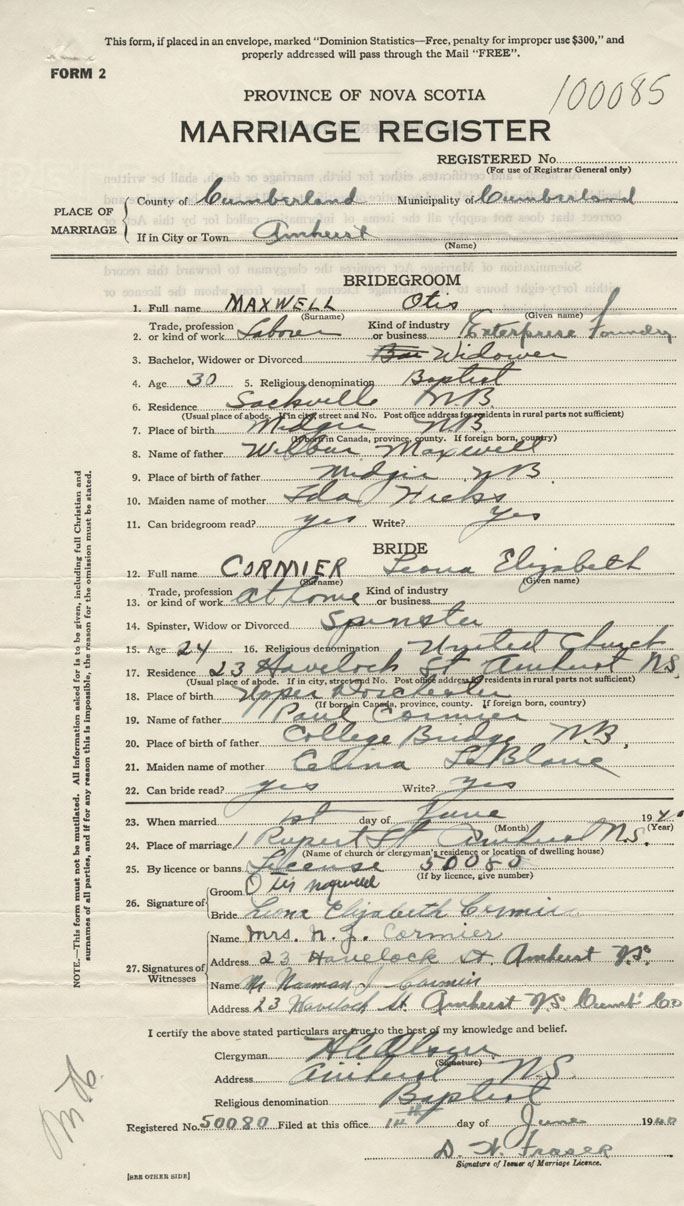 This form, if placed in an envelope, marked "Dominion Statistics—Free, penalty for improper use $300," and
properly addressed will pass through the Mail "FREE".
FORM 2
100085
PROVINCE OF NOVA SCOTIA
MARRIAGE REGISTER
REGISTERED No.
(For use of Registrar General only)
PLACE OF MARRIAGE
County of Cumberland Municipality of Cumberland
If in City or Town Amherst
(Name)
BRIDEGROOM
1. Full name MAXWELL Otis
(Surname) (Given name)
2. Trade, profession or kind of work Laborer Kind of industry or business Enterprise Foundry
3. Bachelor, Widower or Divorced Widower
4. Age 30 5. Religious denomination Baptist
6. Residence Sackville N.B.
(Usual place of abode. If in city, street and No. Post office address for residents in rural parts not sufficient)
7. Place of birth Midgic N.B.
(If born in Canada, province, county. If foreign born, country)
8. Name of father Wilbur Maxwell
9. Place of birth of father Midgic N.B.
10. Maiden name of mother Ida Hicks
11. Can bridegroom read? yes Write? yes
BRIDE
12. Full name CORMIER Leona Elizabeth
(Surname) (Given name)
13. Trade, profession or kind of work at home Kind of industry or business
14. Spinster, Widow or Divorced Spinster
15. Age 24 16. Religious denomination United Church
17. Residence 23 Havelock St Amherst N.S.
(Usual place of abode. If in city, street and No. Post office address for residents in rural parts not sufficient)
18. Place of birth Upper Dorchester
(If born in Canada, province, county. If foreign born, country)
19. Name of father Paul Cormier
20. Place of birth of father College Bridge N.B.
21. Maiden name of mother Celina LeBlanc
22. Can bride read? yes Write? yes
23. When married 1st day of June 1940
(Month) (Year)
24. Place of marriage 1 Rupert St Amherst N.S.
(Name of church or clergyman's residence or location of dwelling house)
25. By licence or banns License 50080
(If by licence, give number)
26. Signature of
Groom Otis maxwell
Bride Leona Elizabeth Cormier
27. Signatures of Witnesses
Name Mrs. N. J. Cormier
Address 23 Havelock St. Amherst N.S.
Name Mr Norman J Cormier
Address 23 Havelock St. Amherst N.S. Cumb' Co
I certify the above stated particulars are true to the best of my knowledge and belief.
Clergyman
(Signature)
Address Amherst N.S.
Religious denomination Baptist
Registered No. 50080 Filed at this office day of June 1940
Signature of Issuer of Marriage Licence.
[SEE OTHER SIDE]
NOTE.—This form must not be mutilated. All information asked for is to be given, including full Christian and
surnames of all parties, and if for any reason this is impossible, the reason for the omission must be stated.